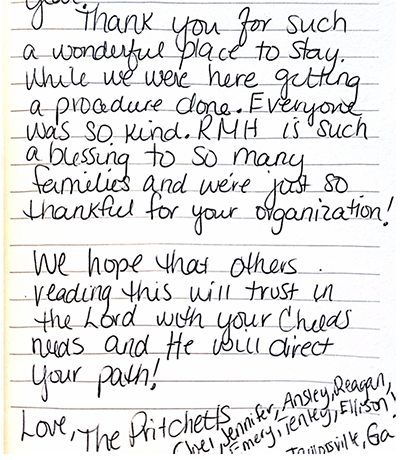 Thank you for such
a wonderful place to stay.
While we were here getting
a procedure done. Everyone
was so kind. RMH is such
a blessing to so many
families and we're just so
thankful for your organization!
We hope that others
reading this will trust in
the Lord with your Childs
needs and He will direct
your path!
Love, The Pritchetts
Jennifer, Ansley, Reagan,
Emery, Tenley, Ellison!
Ga